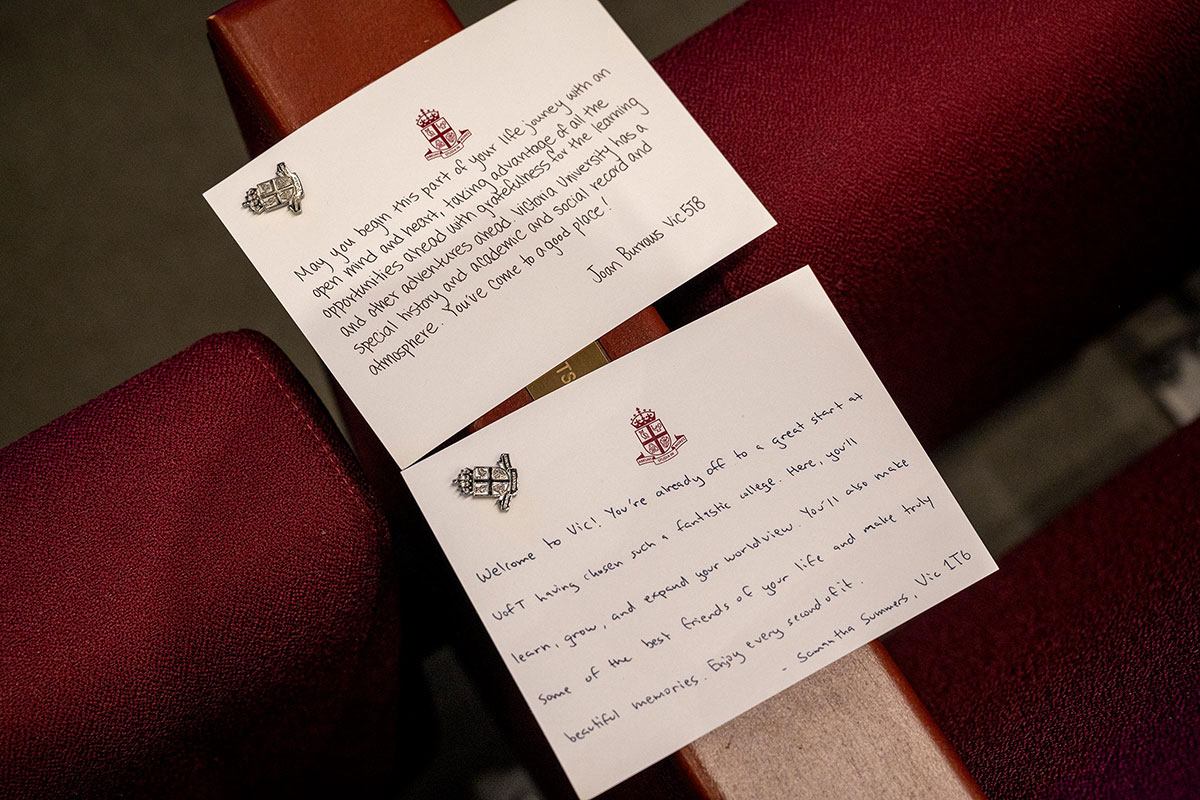 May you begin this part of your life journey with an
open mind and heart, taking advantage of all the
opportunities ahead with gratefulness for the learning
and other adventures ahead. Victoria University has a
special history and academic and social record and
atmosphere. You've come to a good place!
Joan Burrows Vic5T8
TS
Welcome to Vic! You're already off to a great start at
UofT having chosen such a fantastic college. Here, you'll
learn, grow, and expand your worldview. You'll also make
some of the best friends of your life and make truly
beautiful memories. Enjoy every second of it.
- Samantha Summers, Vic 1T6